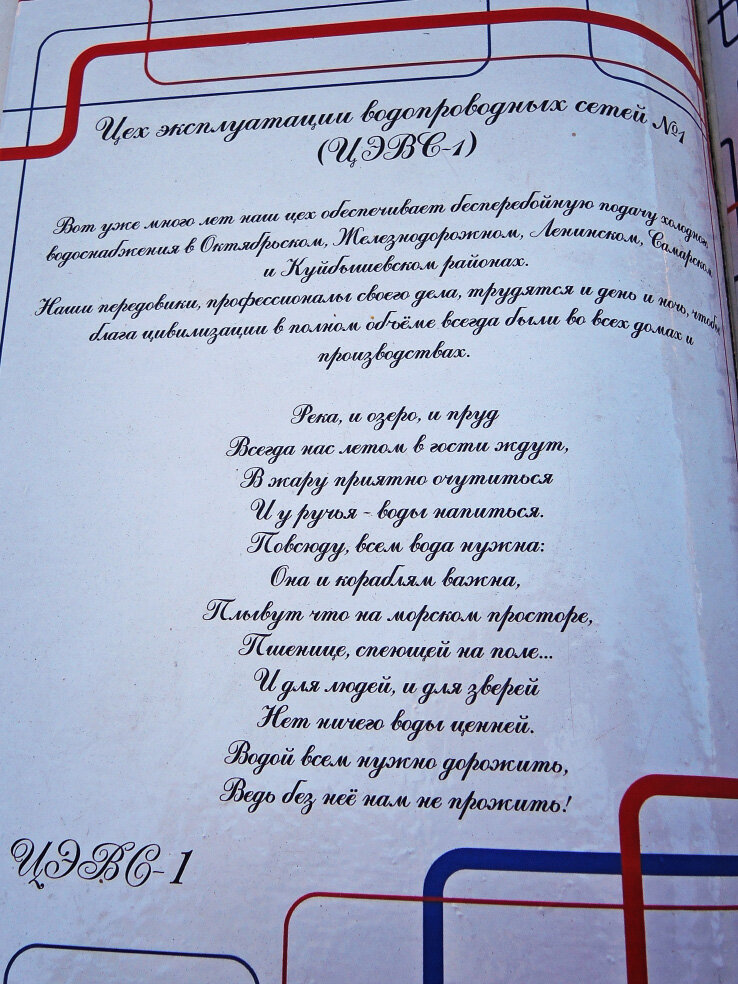 Цех эксплуатации водопроводных сетей №1
(ЦЭВС-1)
Вот уже много лет наш цех обеспечивает бесперебойную подачу холодного
водоснабжения в Октябрьском, Железнодорожном, Ленинском, Самарском
и Куйбышевском районах.
Наши передовики, профессионалы своего дела, трудятся и день и ночь, чтобы
блага цивилизации в полном объёме всегда были во всех домах и
производствах.
Река, и озеро, и пруд
Всегда нас летом в гости ждут,
В жару приятно очутиться
И у ручья - воды напиться.
Повсюду, всем вода нужна:
Она и кораблям важна,
Плывут что на морском просторе,
Пшенице, спеющей на поле...
И для людей, и для зверей
Нет ничего воды ценней.
Водой всем нужно дорожить,
Ведь без неё нам не прожить!
ЦЭВС-1